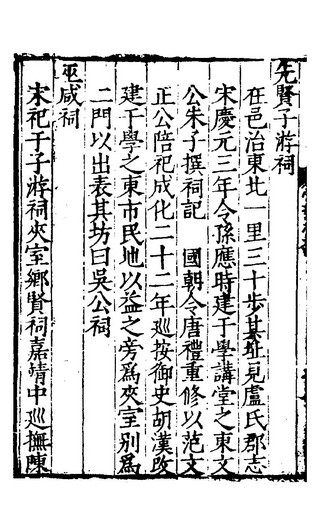 先賢子游祠
在邑治東北一里三十步其址見盧氏郡志
宋慶元三年令孫應時建于學講堂之東文
公朱子撰祠記　國朝令唐禮重修以范文
正公陪祀成化二十二年巡按御史胡漢改
建于學之東市民地以益之旁為夾室別為
二門以出表其坊曰吳公祠
巫咸祠
宋祀于子游祠夾室鄉賢祠嘉靖中巡撫陳